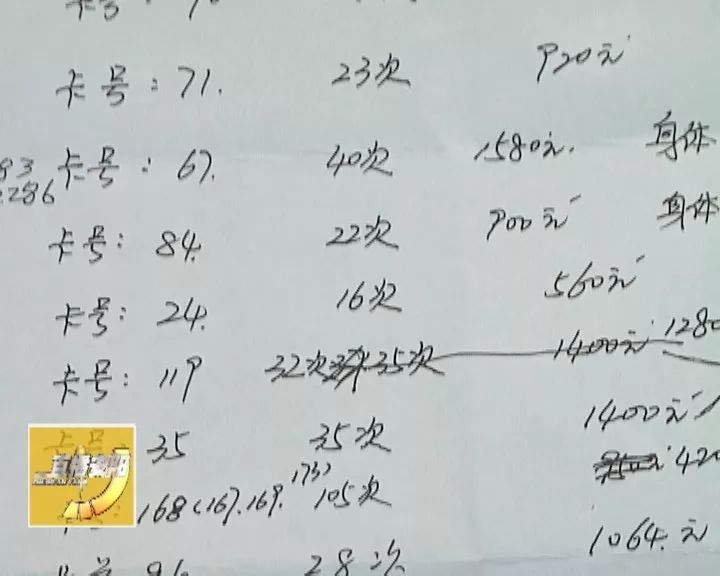 卡号:7
卡号:71. 23次 920元
83 卡号:67. 40次 1580元. 身体
2286
卡号:84. 22次 900元 身体
卡号:24. 16次 560元
卡号:119 32次 35次 1400元 1280
卡号:35 35次 1400元
168(167.169.173) 105次 420
96 28次 1064.元
直播贵阳